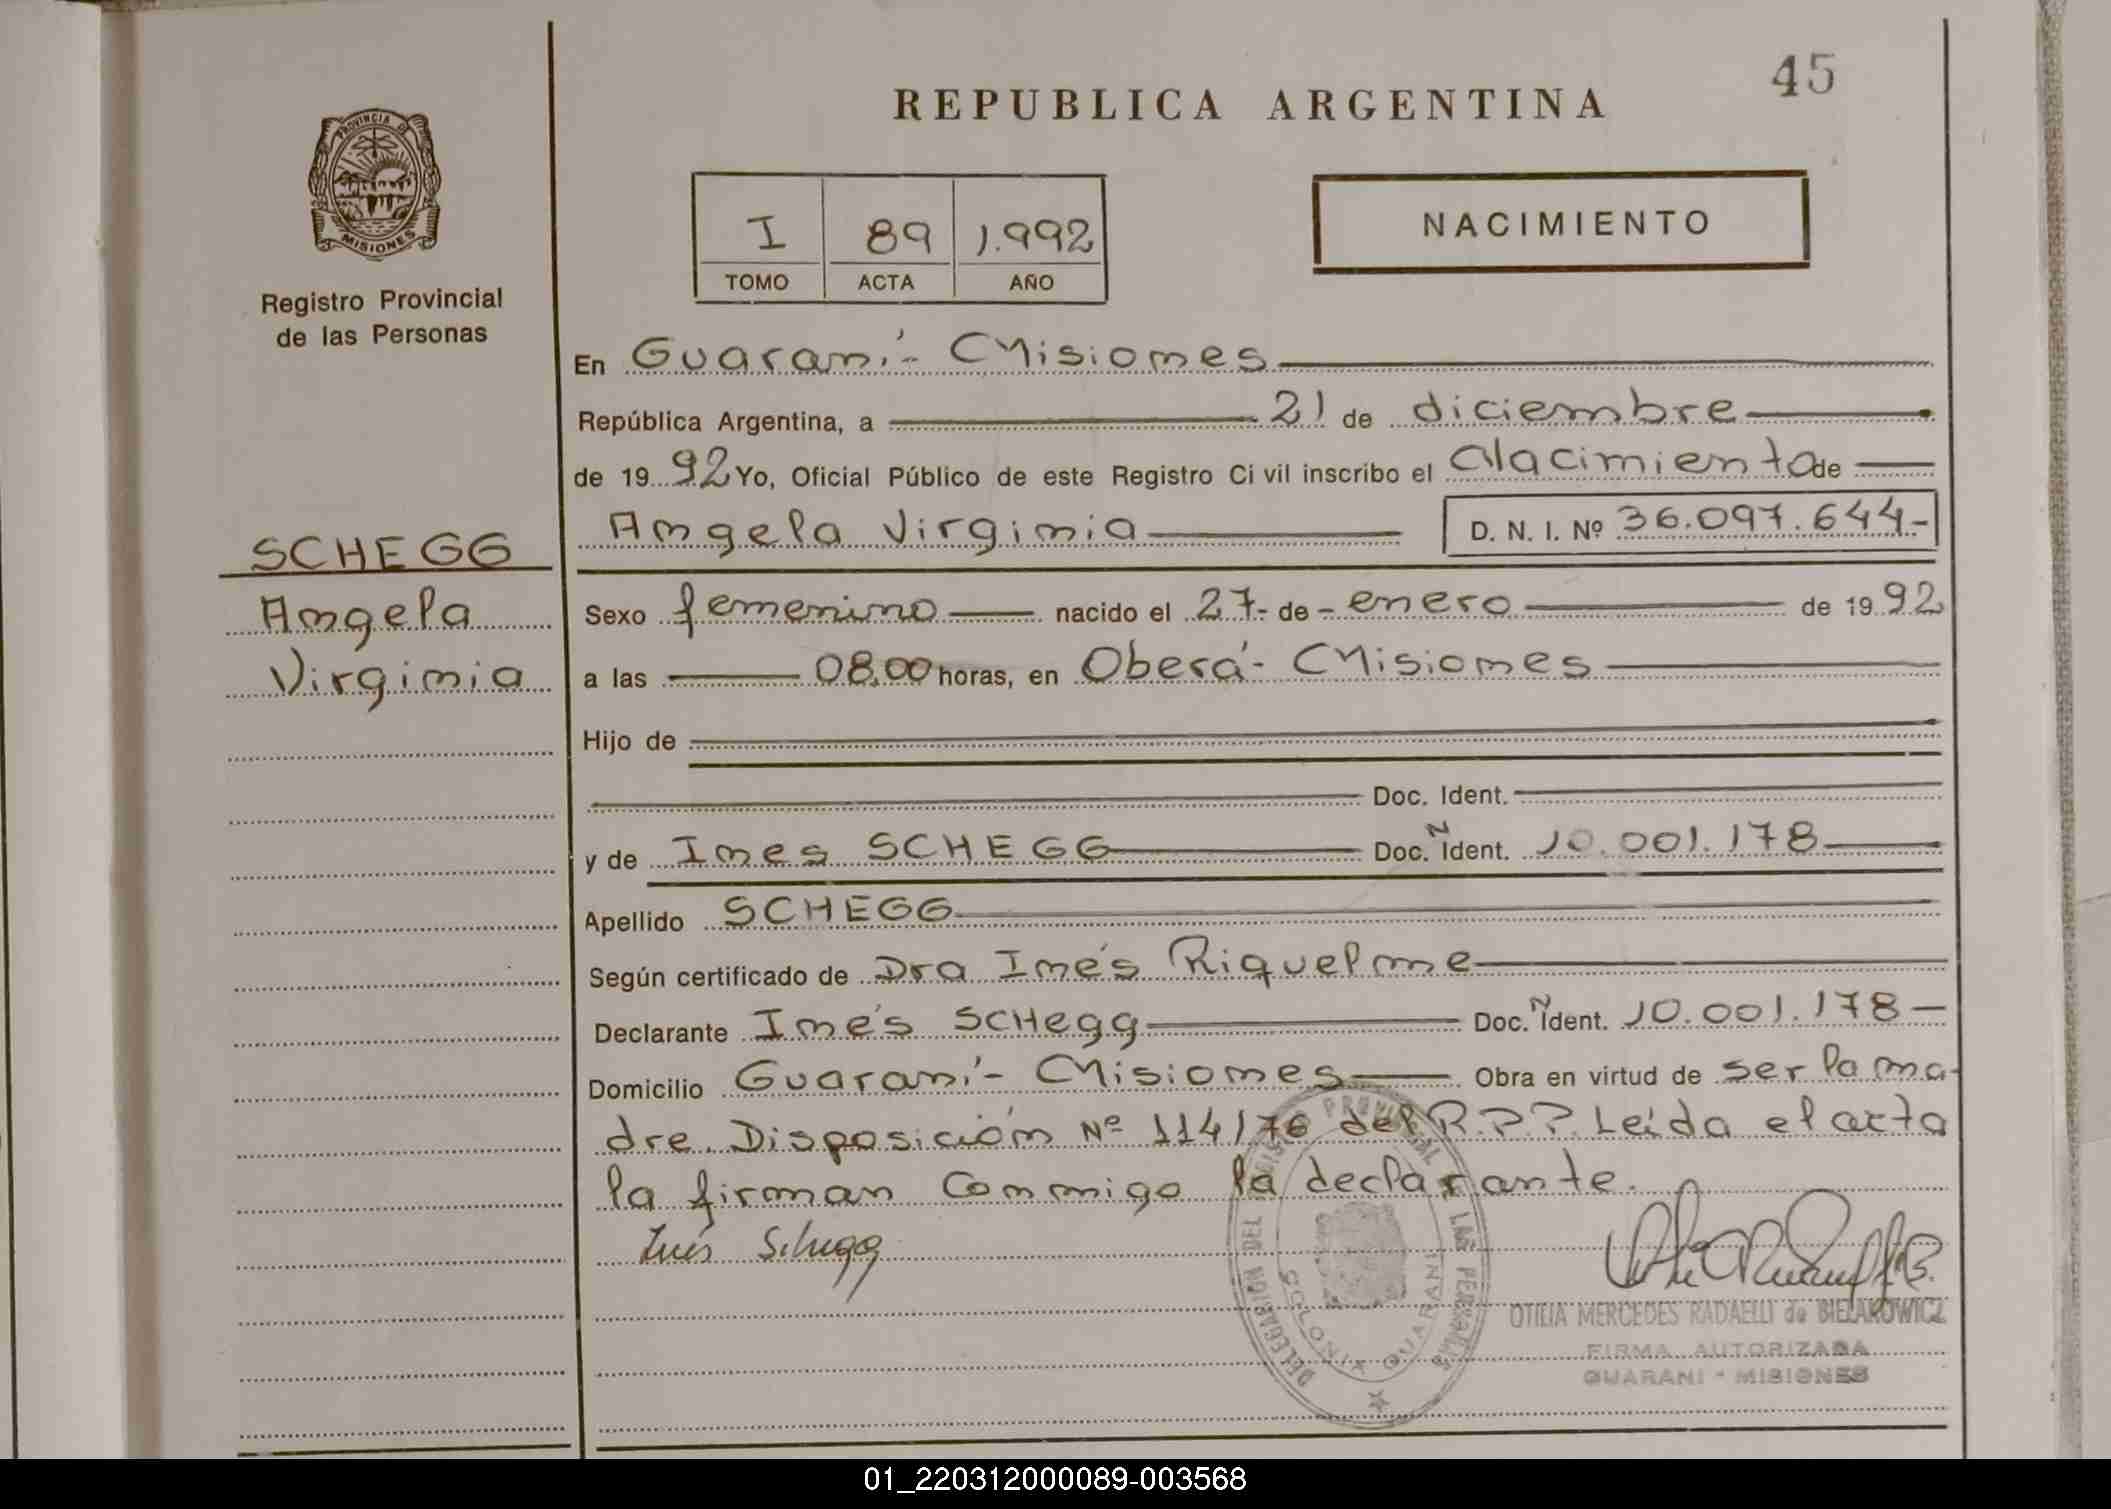 45
REPUBLICA ARGENTINA
PROVINCIA DE
MISIONES
Registro Provincial
de las Personas
I 89 1.992
TOMO ACTA AÑO
NACIMIENTO
En Guaraní- Misiones
República Argentina, a 21 de diciembre
de 19 92 Yo, Oficial Público de este Registro Civil inscribo el Nacimiento de
Angela Virginia D. N. I. Nº 36.097.644-
SCHEGG
Angela
Virginia
Sexo femenino nacido el 27- de - enero de 19 92
a las 08,00 horas, en Oberá- Misiones
Hijo de
Doc. Ident.
y de Ines SCHEGG Doc. Ñ Ident. 10.001.178
Apellido SCHEGG
Según certificado de Dra Inés Riquelme
Declarante Inés SCHegg Doc. Ñ Ident. 10.001.178
Domicilio Guaraní- Misiones Obra en virtud de ser la ma-
dre. Disposición Nº 114/76 del R.P.P. Leída el acta
la firman Conmigo la declarante.
Inés Schegg
DELEGACION DEL REGISTRO PROVINCIAL DE LAS PERSONAS
COLONIA GUARANI
OTILIA MERCEDES RADAELLI de BIELAKOWICZ
FIRMA AUTORIZADA
GUARANI - MISIONES
01_220312000089-003568